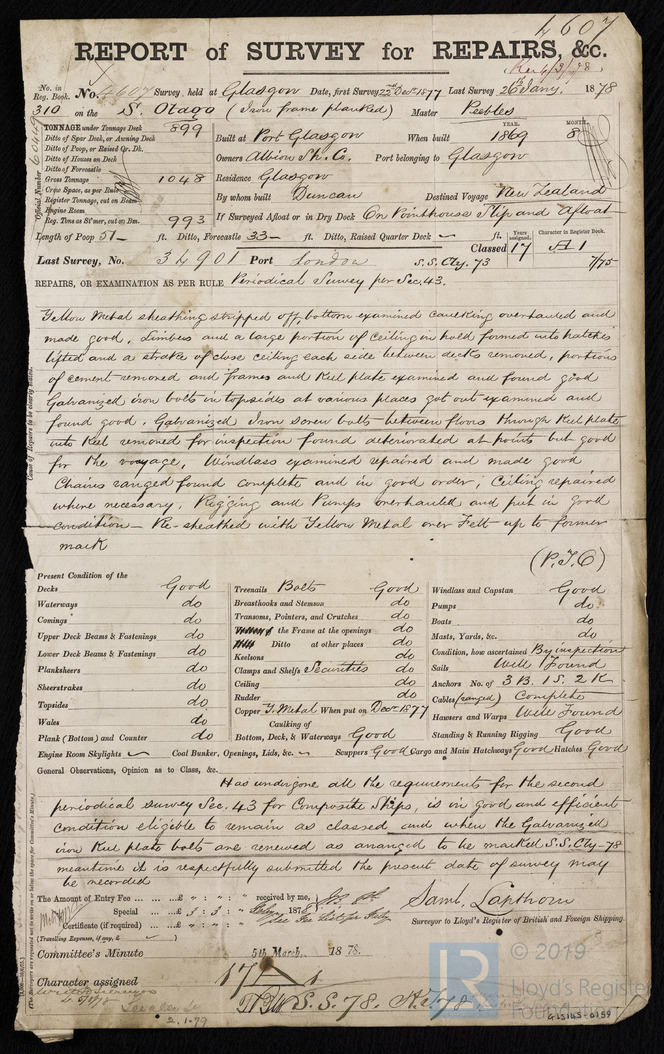 4607
REPORT of SURVEY for REPAIRS, &c.
No. in Reg. Book.
No. 4607 Survey, held at Glasgow Date, first Survey 22nd Decr 1877 Last Survey 26 Jany. 1878
310 on the S. Otago (Iron frame planked) Master Peebles
TONNAGE under Tonnage Deck 899
Ditto of Spar Deck, or Awning Deck
Ditto of Poop, or Raised Qr. Dk.
Ditto of Houses on Deck
Ditto of Forecastle
Gross Tonnage 1048
Crew Space, as per Rule
Register Tonnage, cut on Beam
Engine Room
Reg. Tons as St'mer, cut on Bm. 993
Official Number 60449
YEAR. MONTH.
Built at Port Glasgow When built 1869 8
Owners Albion Sh. Co. Port belonging to Glasgow
Residence Glasgow
By whom built Duncan Destined Voyage New Zealand
If Surveyed Afloat or in Dry Dock On Pointhouse Slip and Afloat
Length of Poop 51 ft. Ditto, Forecastle 33 ft. Ditto, Raised Quarter Deck ft.
Years assigned. Character in Register Book.
Classed 17 A 1
7/75
Last Survey, No. 34901 Port London S.S. Cty. 73
REPAIRS, OR EXAMINATION AS PER RULE Periodical Survey per Sec. 43.
Yellow Metal sheathing stripped off, bottom examined caulking overhauled and
made good. Limbers and a large portion of ceiling in hold formed into hatches
lifted and a strake of close ceiling each side between decks removed, portions
of cement removed and frames and Keel plate examined and found good
Galvanized iron bolts in topsides at various places got out examined and
found good. Galvanized Iron screw bolts between floors through Keel plate
into Keel removed for inspection found deteriorated at points but good
for the voyage. Windlass examined repaired and made good
Chains ranged found complete and in good order, Ceiling repaired
where necessary, Rigging and Pumps overhauled and put in good
condition - Re-sheathed with Yellow Metal over Felt up to former
mark
(P.T.O)
Cause of Repairs to be clearly stated.
Present Condition of the
Decks Good
Waterways do
Comings do
Upper Deck Beams & Fastenings do
Lower Deck Beams & Fastenings do
Planksheers do
Sheerstrakes do
Topsides do
Wales do
Plank (Bottom) and Counter do
Treenails Bolts Good
Breasthooks and Stemson do
Transoms, Pointers, and Crutches do
the Frame at the openings do
Ditto at other places do
Keelsons do
Clamps and Shelfs Securities do
Ceiling do
Rudder do
Copper Y. Metal When put on Decr 1877
Caulking of
Bottom, Deck, & Waterways Good
Windlass and Capstan Good
Pumps do
Boats do
Masts, Yards, &c. do
Condition, how ascertained By inspection
Sails Well Found
Anchors No. of 3 B. 1 S. 2 K
Cables (ranged) Complete
Hawsers and Warps Well Found
Standing & Running Rigging Good
Engine Room Skylights Coal Bunker, Openings, Lids, &c. Scuppers Good Cargo and Main Hatchways Good Hatches Good
General Observations, Opinion as to Class, &c.
Has undergone all the requirements for the second
periodical survey Sec. 43 for Composite Ships, is in good and efficient
condition eligible to remain as classed and when the Galvanized
iron Keel plate bolts are renewed as arranged to be marked S.S. Cty-78
meantime it is respectfully submitted the present date of survey may
be recorded
The Amount of Entry Fee ... £ : : received by me,
Special ... £ 3 : 3 : 1878
Certificate (if required) ... £ : :
(Travelling Expenses, if any, £ )
Saml. Lapthorn
Surveyor to Lloyd's Register of British and Foreign Shipping.
Committee's Minute 5th March 1878.
Character assigned 17 A 1
S.S. 78.
2.1.79
© 2019
Lloyd's Register
Foundation